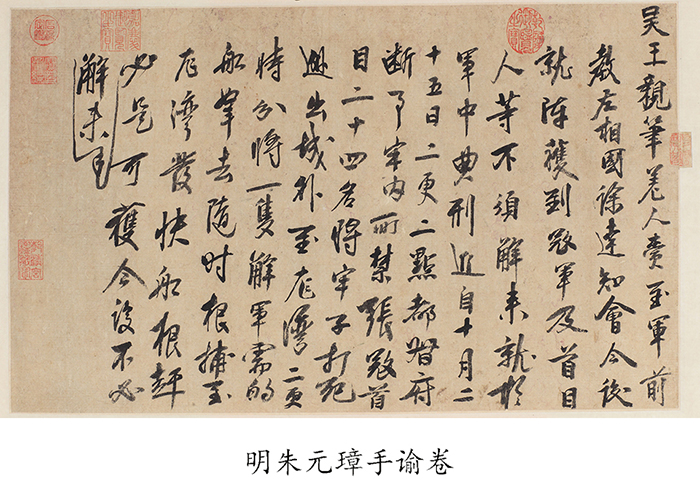 吳王親筆差人賫至軍前
教左相國徐達知會今後
就陣獲到寇軍及首目
人等不須解来就於
軍中典刑近自十月二
十五日二更二點都督府
断事牢内所禁張寇首
目二十四名將牢子打死
出城外至龙灣二更
時分將一隻解軍需的
船拏去隨时根捕至
龙灣發快船根赶
必是可獲今後不必
解来
明朱元璋手谕卷